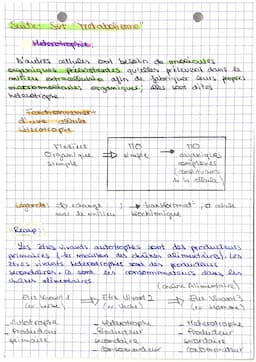 Suite Sur "Métabolisme"
Hétérotrophie.
D'autres cellules ont besoin de molécules
organiques préexistantes qu'elles prélèvent dans le
milieu extracellulaire afin de fabriquer leurs propres
macromolécules organiques; elles sont dites
hétérotrophe.
Fonctionnement
d'une cellule
hétérotrophe
Matière
Organique
simple
MO
simple
MO
organiques
complexes
(constituants
de la cellule)
Légende: échange
avec le milieu
transformat°
biochimique
cellule
Recap:
Les êtres vivants autotrophes sont des producteurs
primaires (1er maillon des chaînes alimentaires). Les
êtres vivants hétérotrophes sont des producteurs
secondaires. Ce sont les consommateurs dans les
chaînes alimentaires.
(chaîne Alimentaire)
Etre Vivant 1
Etre Vivant 2
Etre Vivant 3
(ex: Vache)
(ex: Homme)
- Autotrophe
- Hétérotrophe
- Hétérotrophe
- Producteur
- Producteur
- Producteur
primaire
secondaire
secondaire
- Consommateur
- Consommateur